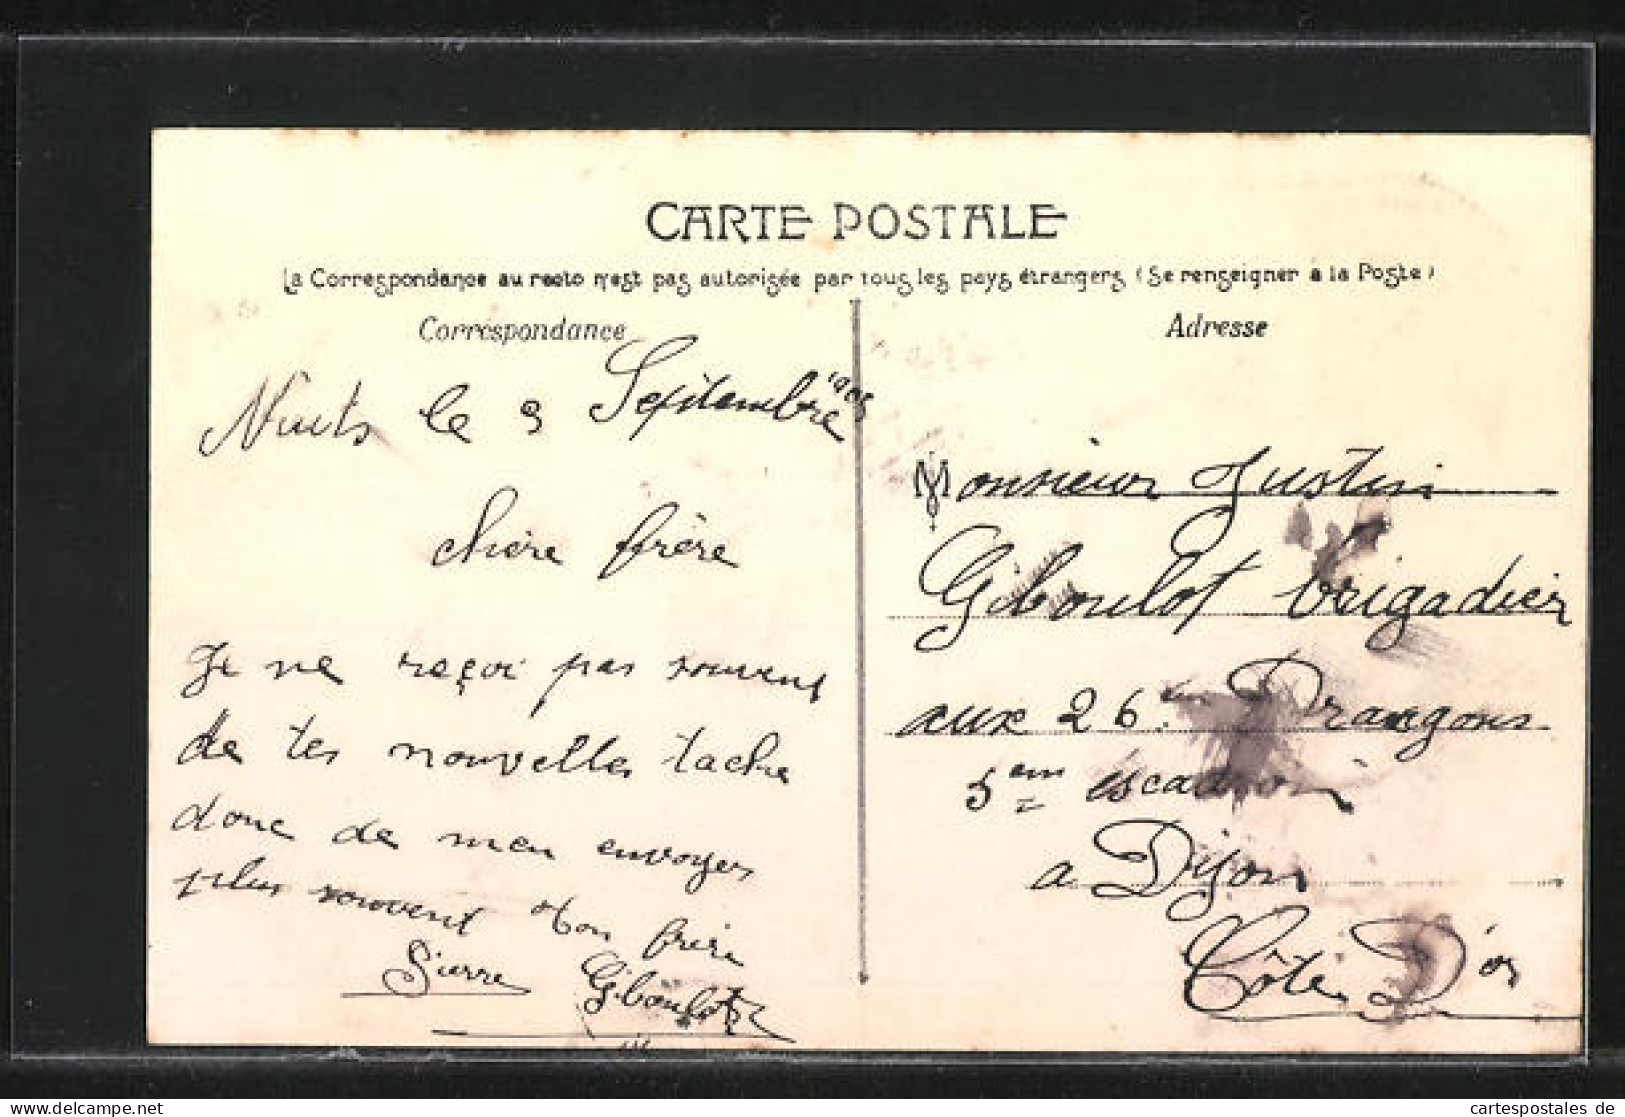 CARTE POSTALE
La Correspondance au recto n'est pas autorisée par tous les pays étrangers (Se renseigner à la Poste)
Correspondance
Nuits le 9 Septembre 1905
chère frère
Je ne reçoi pas souvent
de tes nouvelles tache
donc de men envoyer
plus souvent ton frère
Pierre Giboulot
Adresse
Monsieur Justin
Giboulot brigadier
aux 26em Dragons
5em escadron
a Dijon
Côte D'or
cartespostales de